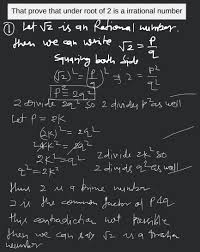 That prove that under root of 2 is a irrational number
① Let √2 is an Rational number.
then we can write √2 = p/q
Squaring both side
(√2)² = (p/q)² ⇒ 2 = p²/q²
p² = 2q²
2 divide 2q² so 2 divides p² as well
Let P = 2K
(2K)² = 2q²
4K² = 2q²
2K² = q²
2 divide 2K² so
q² = 2K²
2 divids q² as well
thus 2 is a prime number
2 is the common factor of P & q
this contradiction not possible
then we can say √2 is a
number